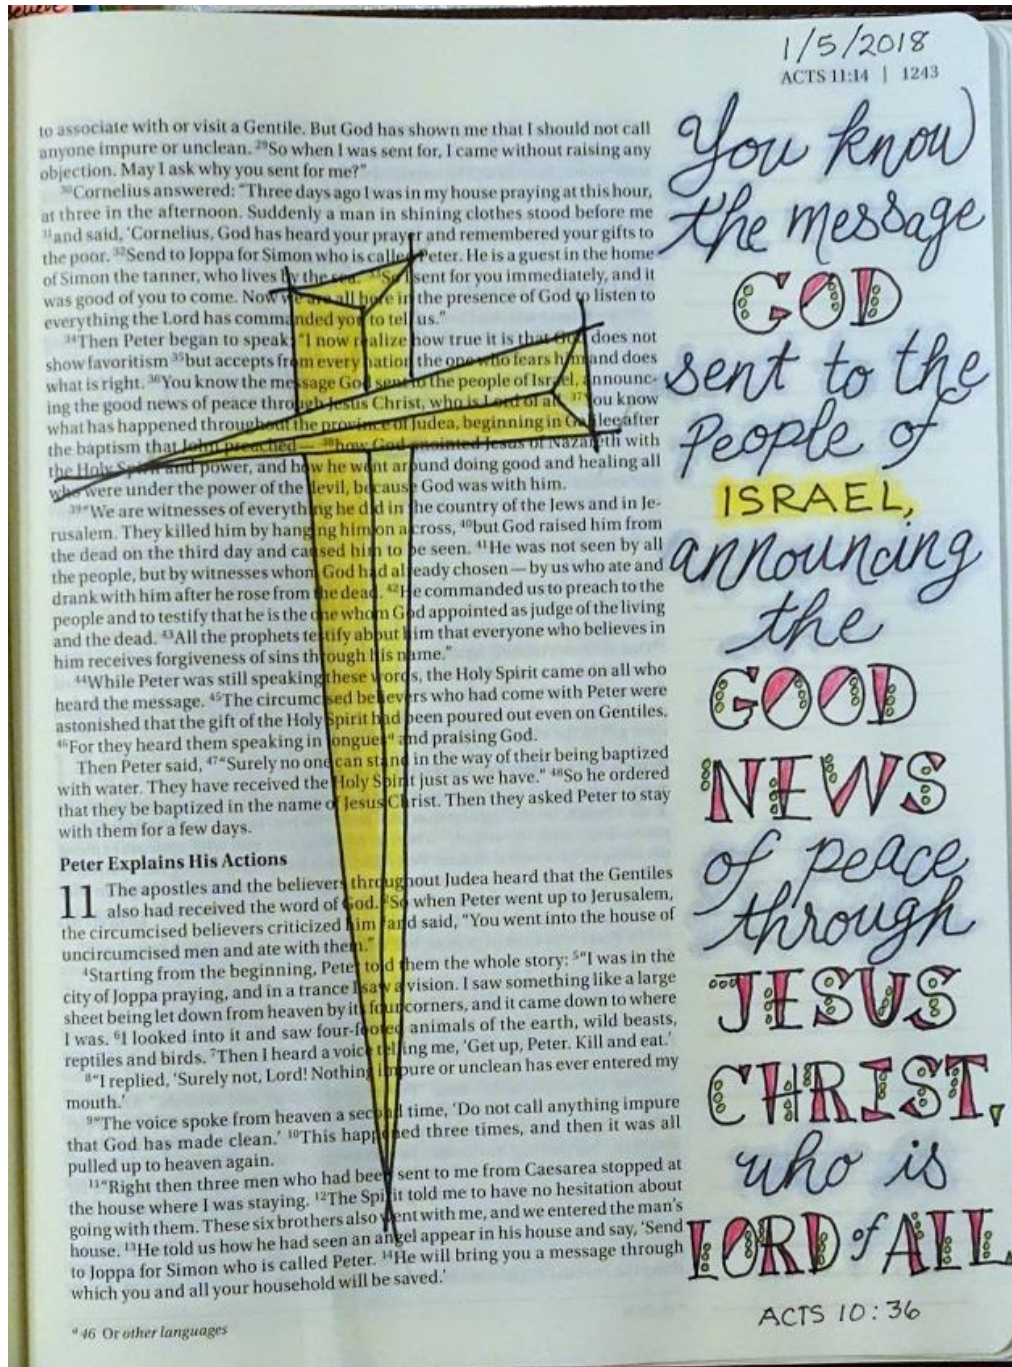 1/5/2018
ACTS 11:14 | 1243
to associate with or visit a Gentile. But God has shown me that I should not call
anyone impure or unclean. ²⁹So when I was sent for, I came without raising any
objection. May I ask why you sent for me?”
³⁰Cornelius answered: “Three days ago I was in my house praying at this hour,
at three in the afternoon. Suddenly a man in shining clothes stood before me
³¹and said, ‘Cornelius, God has heard your prayer and remembered your gifts to
the poor. ³²Send to Joppa for Simon who is called Peter. He is a guest in the home
of Simon the tanner, who lives by the sea.’ ³³So I sent for you immediately, and it
was good of you to come. Now we are all here in the presence of God to listen to
everything the Lord has commanded you to tell us.”
³⁴Then Peter began to speak: “I now realize how true it is that God does not
show favoritism ³⁵but accepts from every nation the one who fears him and does
what is right. ³⁶You know the message God sent to the people of Israel, announc-
ing the good news of peace through Jesus Christ, who is Lord of all. ³⁷You know
what has happened throughout the province of Judea, beginning in Galilee after
the baptism that John preached — ³⁸how God anointed Jesus of Nazareth with
the Holy Spirit and power, and how he went around doing good and healing all
who were under the power of the devil, because God was with him.
³⁹“We are witnesses of everything he did in the country of the Jews and in Je-
rusalem. They killed him by hanging him on a cross, ⁴⁰but God raised him from
the dead on the third day and caused him to be seen. ⁴¹He was not seen by all
the people, but by witnesses whom God had already chosen — by us who ate and
drank with him after he rose from the dead. ⁴²He commanded us to preach to the
people and to testify that he is the one whom God appointed as judge of the living
and the dead. ⁴³All the prophets testify about him that everyone who believes in
him receives forgiveness of sins through his name.”
⁴⁴While Peter was still speaking these words, the Holy Spirit came on all who
heard the message. ⁴⁵The circumcised believers who had come with Peter were
astonished that the gift of the Holy Spirit had been poured out even on Gentiles.
⁴⁶For they heard them speaking in tonguesᵃ and praising God.
Then Peter said, ⁴⁷“Surely no one can stand in the way of their being baptized
with water. They have received the Holy Spirit just as we have.” ⁴⁸So he ordered
that they be baptized in the name of Jesus Christ. Then they asked Peter to stay
with them for a few days.
Peter Explains His Actions
11 The apostles and the believers throughout Judea heard that the Gentiles
also had received the word of God. ²So when Peter went up to Jerusalem,
the circumcised believers criticized him ³and said, “You went into the house of
uncircumcised men and ate with them.”
⁴Starting from the beginning, Peter told them the whole story: ⁵“I was in the
city of Joppa praying, and in a trance I saw a vision. I saw something like a large
sheet being let down from heaven by its four corners, and it came down to where
I was. ⁶I looked into it and saw four-footed animals of the earth, wild beasts,
reptiles and birds. ⁷Then I heard a voice telling me, ‘Get up, Peter. Kill and eat.’
⁸“I replied, ‘Surely not, Lord! Nothing impure or unclean has ever entered my
mouth.’
⁹“The voice spoke from heaven a second time, ‘Do not call anything impure
that God has made clean.’ ¹⁰This happened three times, and then it was all
pulled up to heaven again.
¹¹“Right then three men who had been sent to me from Caesarea stopped at
the house where I was staying. ¹²The Spirit told me to have no hesitation about
going with them. These six brothers also went with me, and we entered the man’s
house. ¹³He told us how he had seen an angel appear in his house and say, ‘Send
to Joppa for Simon who is called Peter. ¹⁴He will bring you a message through
which you and all your household will be saved.’
ᵃ 46 Or other languages
You know
the message
GOD
sent to the
People of
ISRAEL,
announcing
the
GOOD
NEWS
of peace
through
JESUS
CHRIST,
who is
LORD of ALL
ACTS 10:36